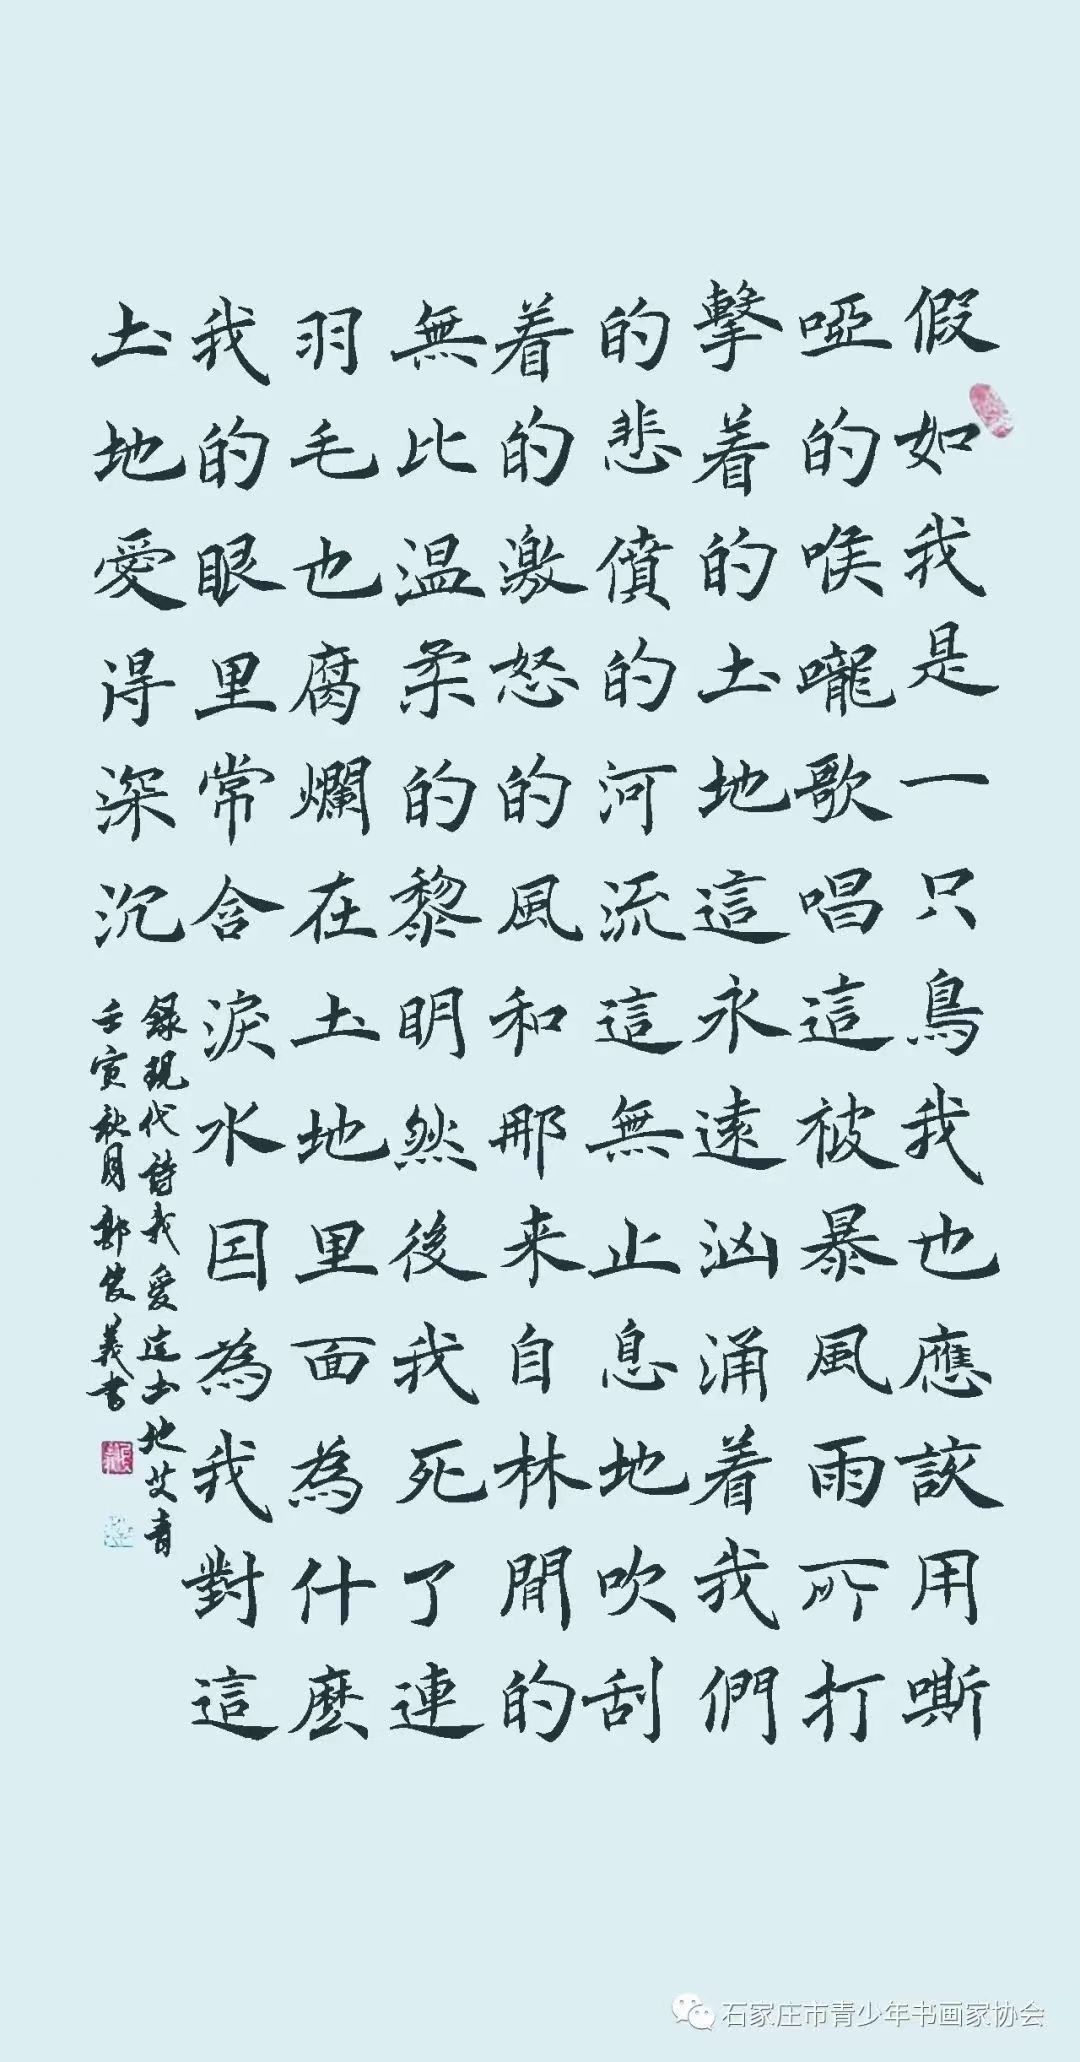 假如我是一只鳥我也應該用嘶
啞的喉嚨歌唱這被暴風雨所打
擊着的土地這永遠汹涌着我們
的悲憤的河流這無止息地吹刮
着的激怒的風和那来自林間的
無比温柔的黎明然後我死了連
羽毛也腐爛在土地里面為什麽
我的眼里常含淚水因為我對這
土地愛得深沉
録現代詩我愛這土地艾青
壬寅秋月郭義书
石家庄市青少年书画家协会